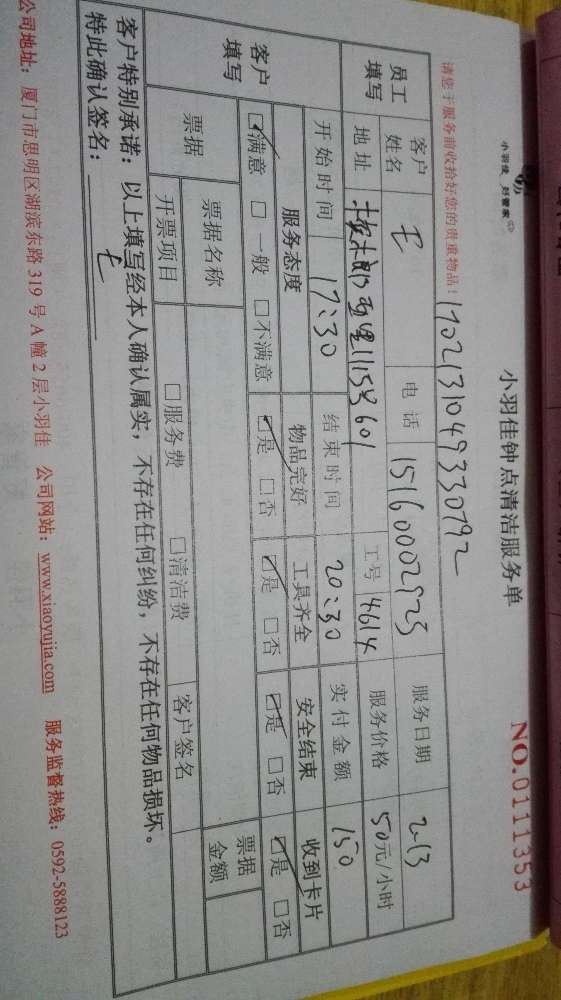 小羽佳 好管家
小羽佳钟点清洁服务单
NO.0111353
请您于服务前收拾好您的贵重物品！
1702131049330792
员工填写
客户姓名 毛 电话 15160002925 服务日期 2-13
地址 115号601 工号 4614 服务价格 50元/小时
开始时间 17:30 结束时间 20:30 实付金额 150
客户填写
服务态度 物品完好 工具齐全 安全结束 收到卡片
☑满意 □一般 □不满意 ☑是 □否 ☑是 □否 ☑是 □否 ☑是 □否
票据 票据名称 票据金额
开票项目 □服务费 □清洁费 客户签名
客户特别承诺：以上填写经本人确认属实，不存在任何纠纷，不存在任何物品损坏。
特此确认签名： 毛
公司地址：厦门市思明区湖滨东路 319 号 A 幢 2 层小羽佳 公司网站：www.xiaoyujia.com 服务监督热线：0592-5888123